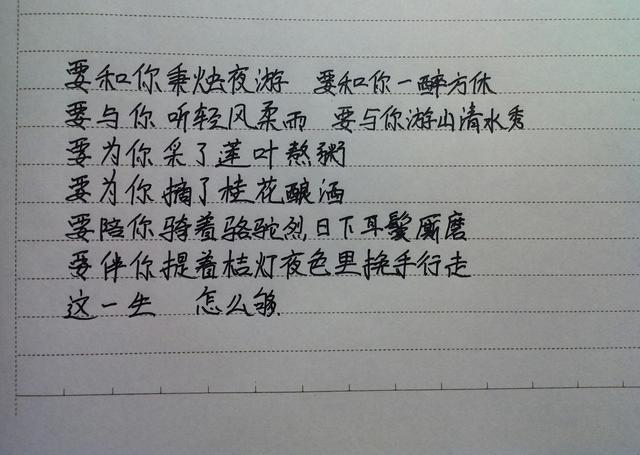 要和你秉烛夜游 要和你一醉方休
要与你听轻风柔雨 要与你游山清水秀
要为你采了莲叶熬粥
要为你摘了桂花酿酒
要陪你骑着骆驼烈日下耳鬓厮磨
要伴你提着桔灯夜色里挽手行走
这一生 怎么够